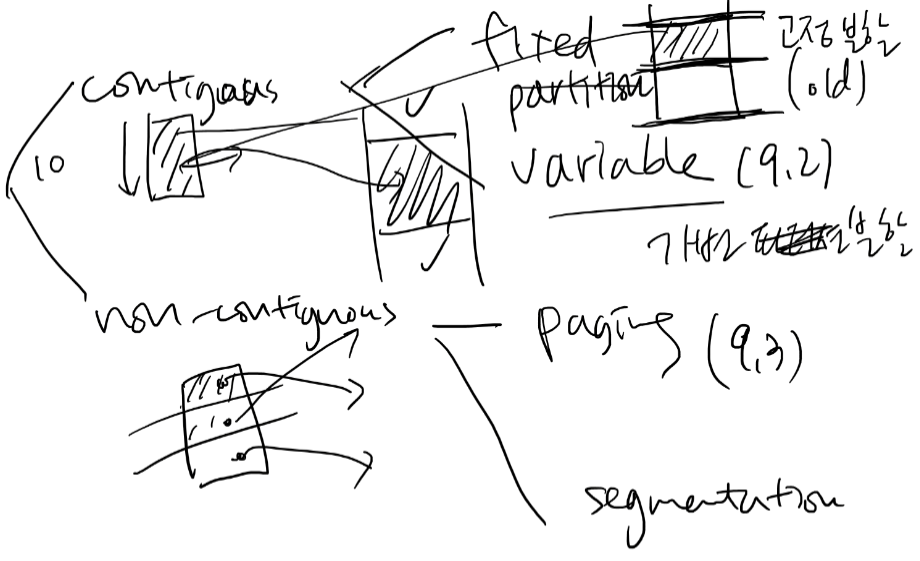 contiguous
fixed
partition
고정분할
(old)
10
variable (9,2)
가변분할
non-contiguous
paging (9,3)
segmentation